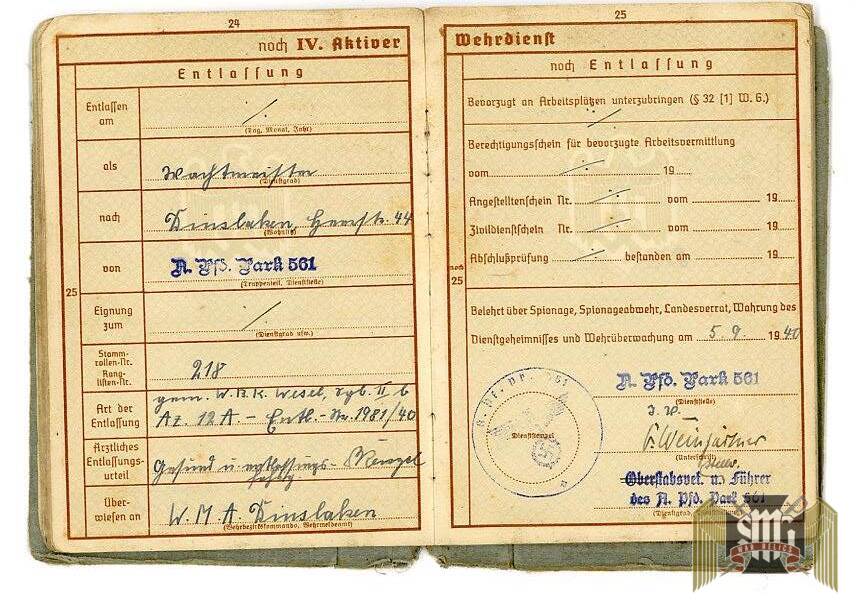 24
noch IV. Aktiver
Entlassung
Entlassen am
./.
(Tag, Monat, Jahr)
als
Wachtmeister
(Dienstgrad)
nach
Dinslaken, Heerstr. 44
(Wohnsitz)
von
A. Pfd. Park 561
(Truppenteil, Dienststelle)
25
Eignung zum
./.
(Dienstgrad usw.)
Stammrollen-Nr.
Ranglisten-Nr.
218
Art der Entlassung
gem. W.B.K. Wesel, Sgb. II b
Az. 12 A. – Entl.-Nr. 1981/40
Ärztliches Entlassungsurteil
Gesund u. entlassungs-
fähig
Überwiesen an
W.M.A. Dinslaken
(Wehrbezirkskommando, Wehrmeldeamt)
25
Wehrdienst
noch Entlassung
Bevorzugt an Arbeitsplätzen unterzubringen (§ 32 [1] W. G.)
Berechtigungsschein für bevorzugte Arbeitsvermittlung
vom ./. 19
Angestelltenschein Nr. ./. vom 19
Zivildienstschein Nr. ./. vom 19
Abschlußprüfung ./. bestanden am 19
noch
25
Belehrt über Spionage, Spionageabwehr, Landesverrat, Wahrung des
Dienstgeheimnisses und Wehrüberwachung am 5. 9. 1940
A. Pfd. Park 561
(Dienststelle)
Dienststempel
(Unterschrift)
Oberstabsvet. u. Führer
des A. Pfd. Park 561
(Dienstgrad
SMG
WAR RELICS